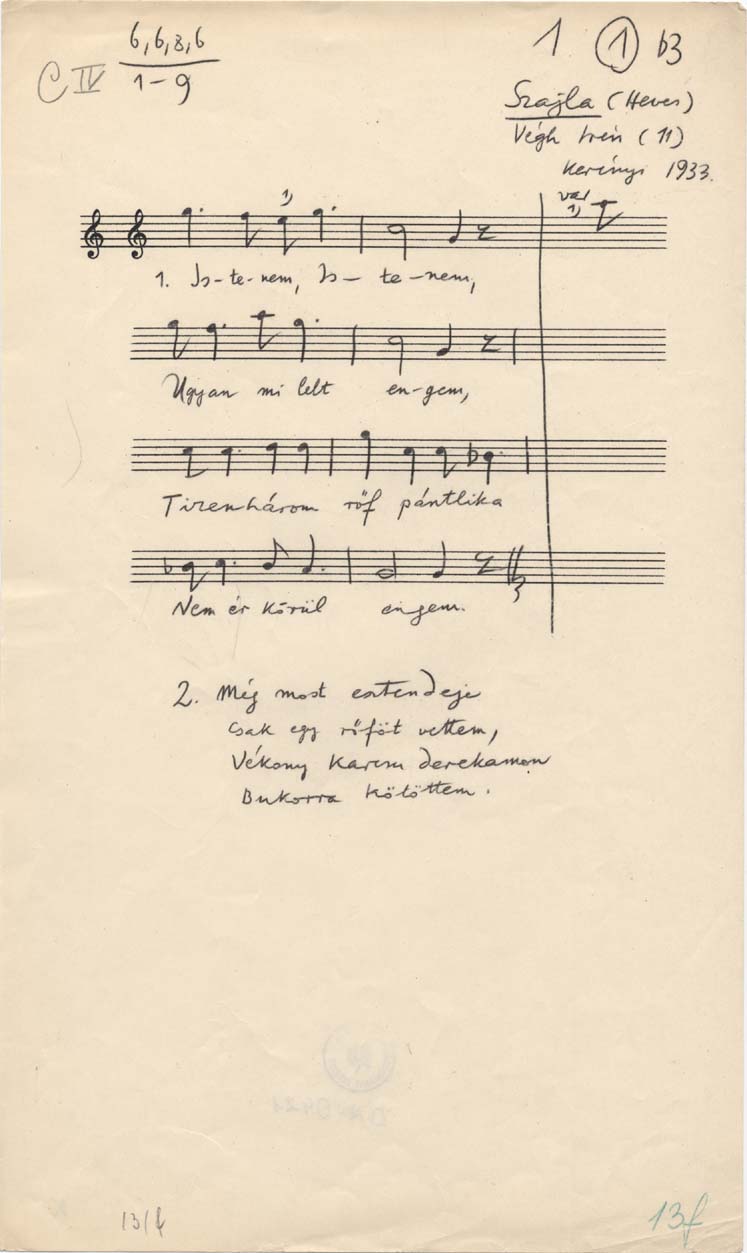 6,6,8,6
C IV
1-9
1 1 b3
Szajla (Heves)
Végh Irén (11)
Kerényi 1933.
var
1)
1)
1. Is-te-nem, Is-te-nem,
Ugyan mi lelt en-gem,
Tizenhárom röf pántlika
Nem ér körül engem.
2. Még most esztendeje
Csak egy rőföt vettem,
Vékony karcsu derekamon
Bukorra kötöttem.
13/f
13f